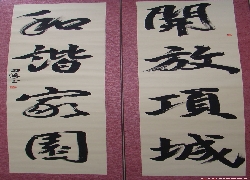 開放項城
和諧家園